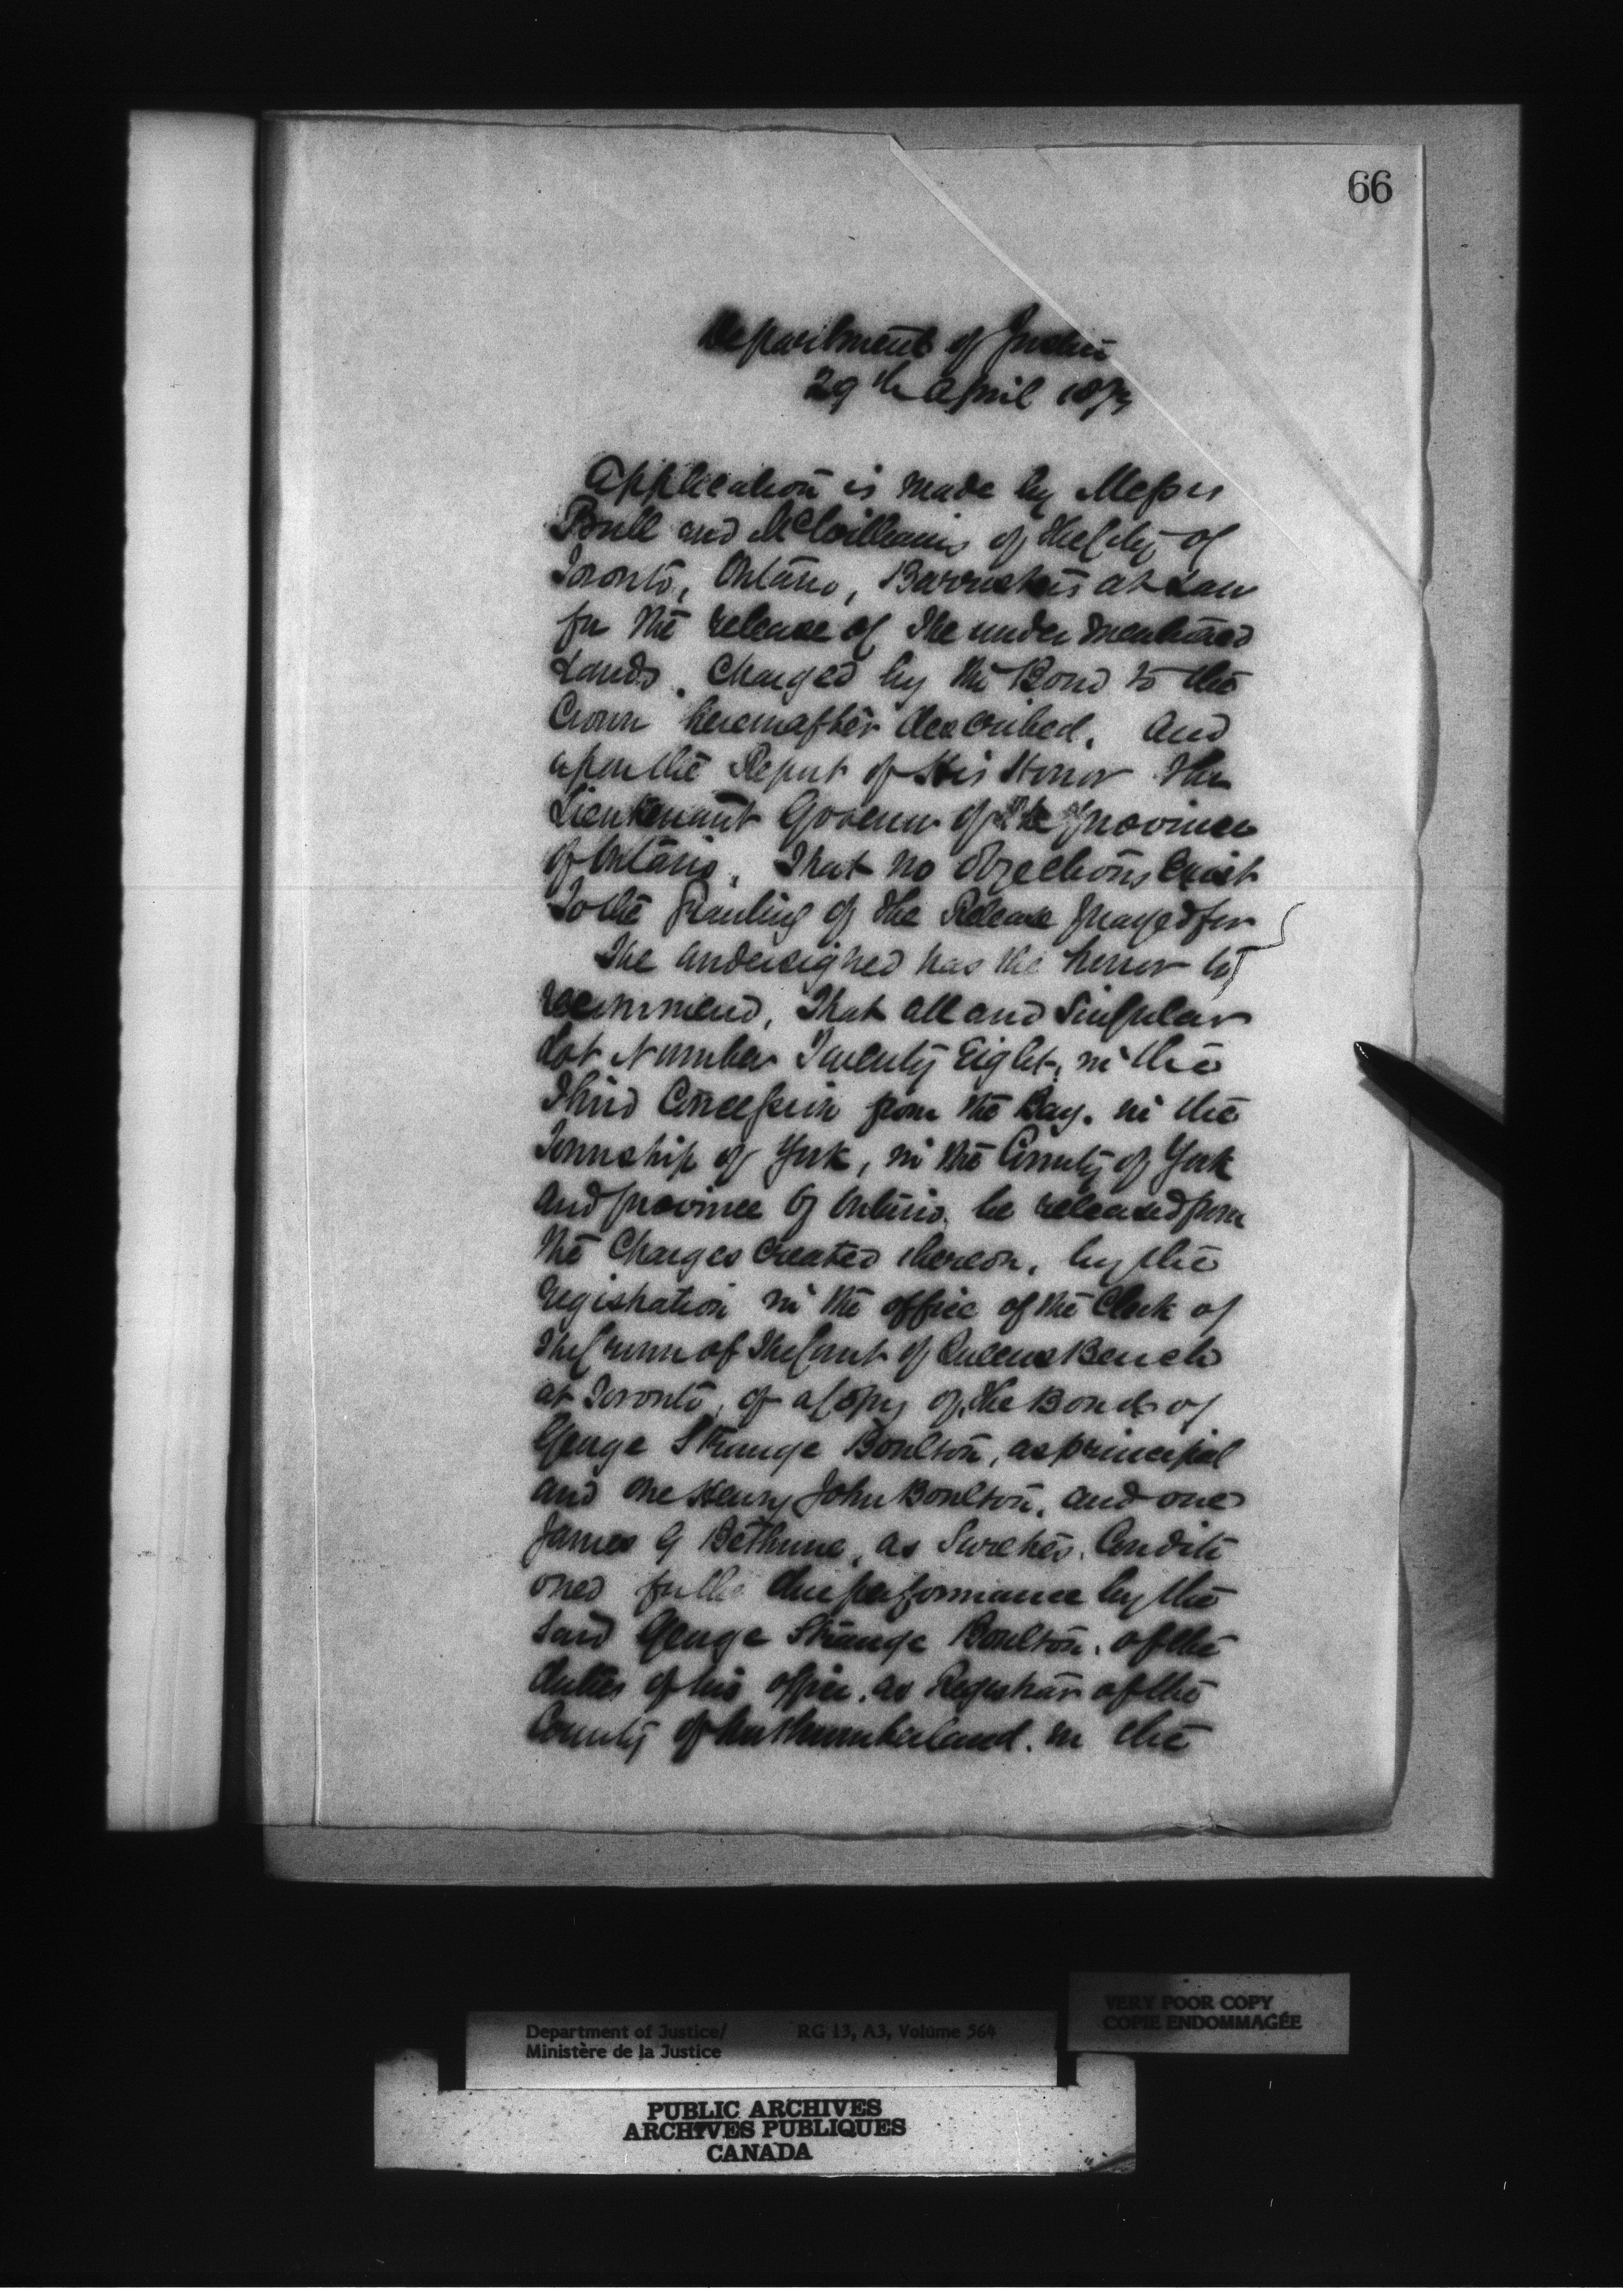 66
Department of Justice
29th April 1873
Application is made by Messrs
Bull and McWilliams of the City of
Toronto, Ontario, Barristers at Law
for the release of the under mentioned
Lands. Charged by the Bond to the
Crown hereinafter described. And
upon the Report of His Honor The
Lieutenant Governor of the Province
of Ontario. That no objections exist
To the Granting of the Release prayed for
The undersigned has the honor to
recommend, That all and Singular
Lot Number Twenty Eight, in the
Third Concession from the Bay. in the
Township of York, in the County of York
and province of Ontario be released from
the Charges created thereon, by the
registration in the office of the Clerk of
The Crown of The Court of Queens Bench
at Toronto, of a Copy of the Bond of
George Strange Boulton, as principal
and one Henry John Boulton, and one
James G Bethune, as Sureties. Conditi
oned for the due performance by the
said George Strange Boulton. of the
duties of his office. as Registrar of the
County of Northumberland. in the
VERY POOR COPY
COPIE ENDOMMAGÉE
Department of Justice/ RG 13, A3, Volume 564
Ministère de la Justice
PUBLIC ARCHIVES
ARCHIVES PUBLIQUES
CANADA